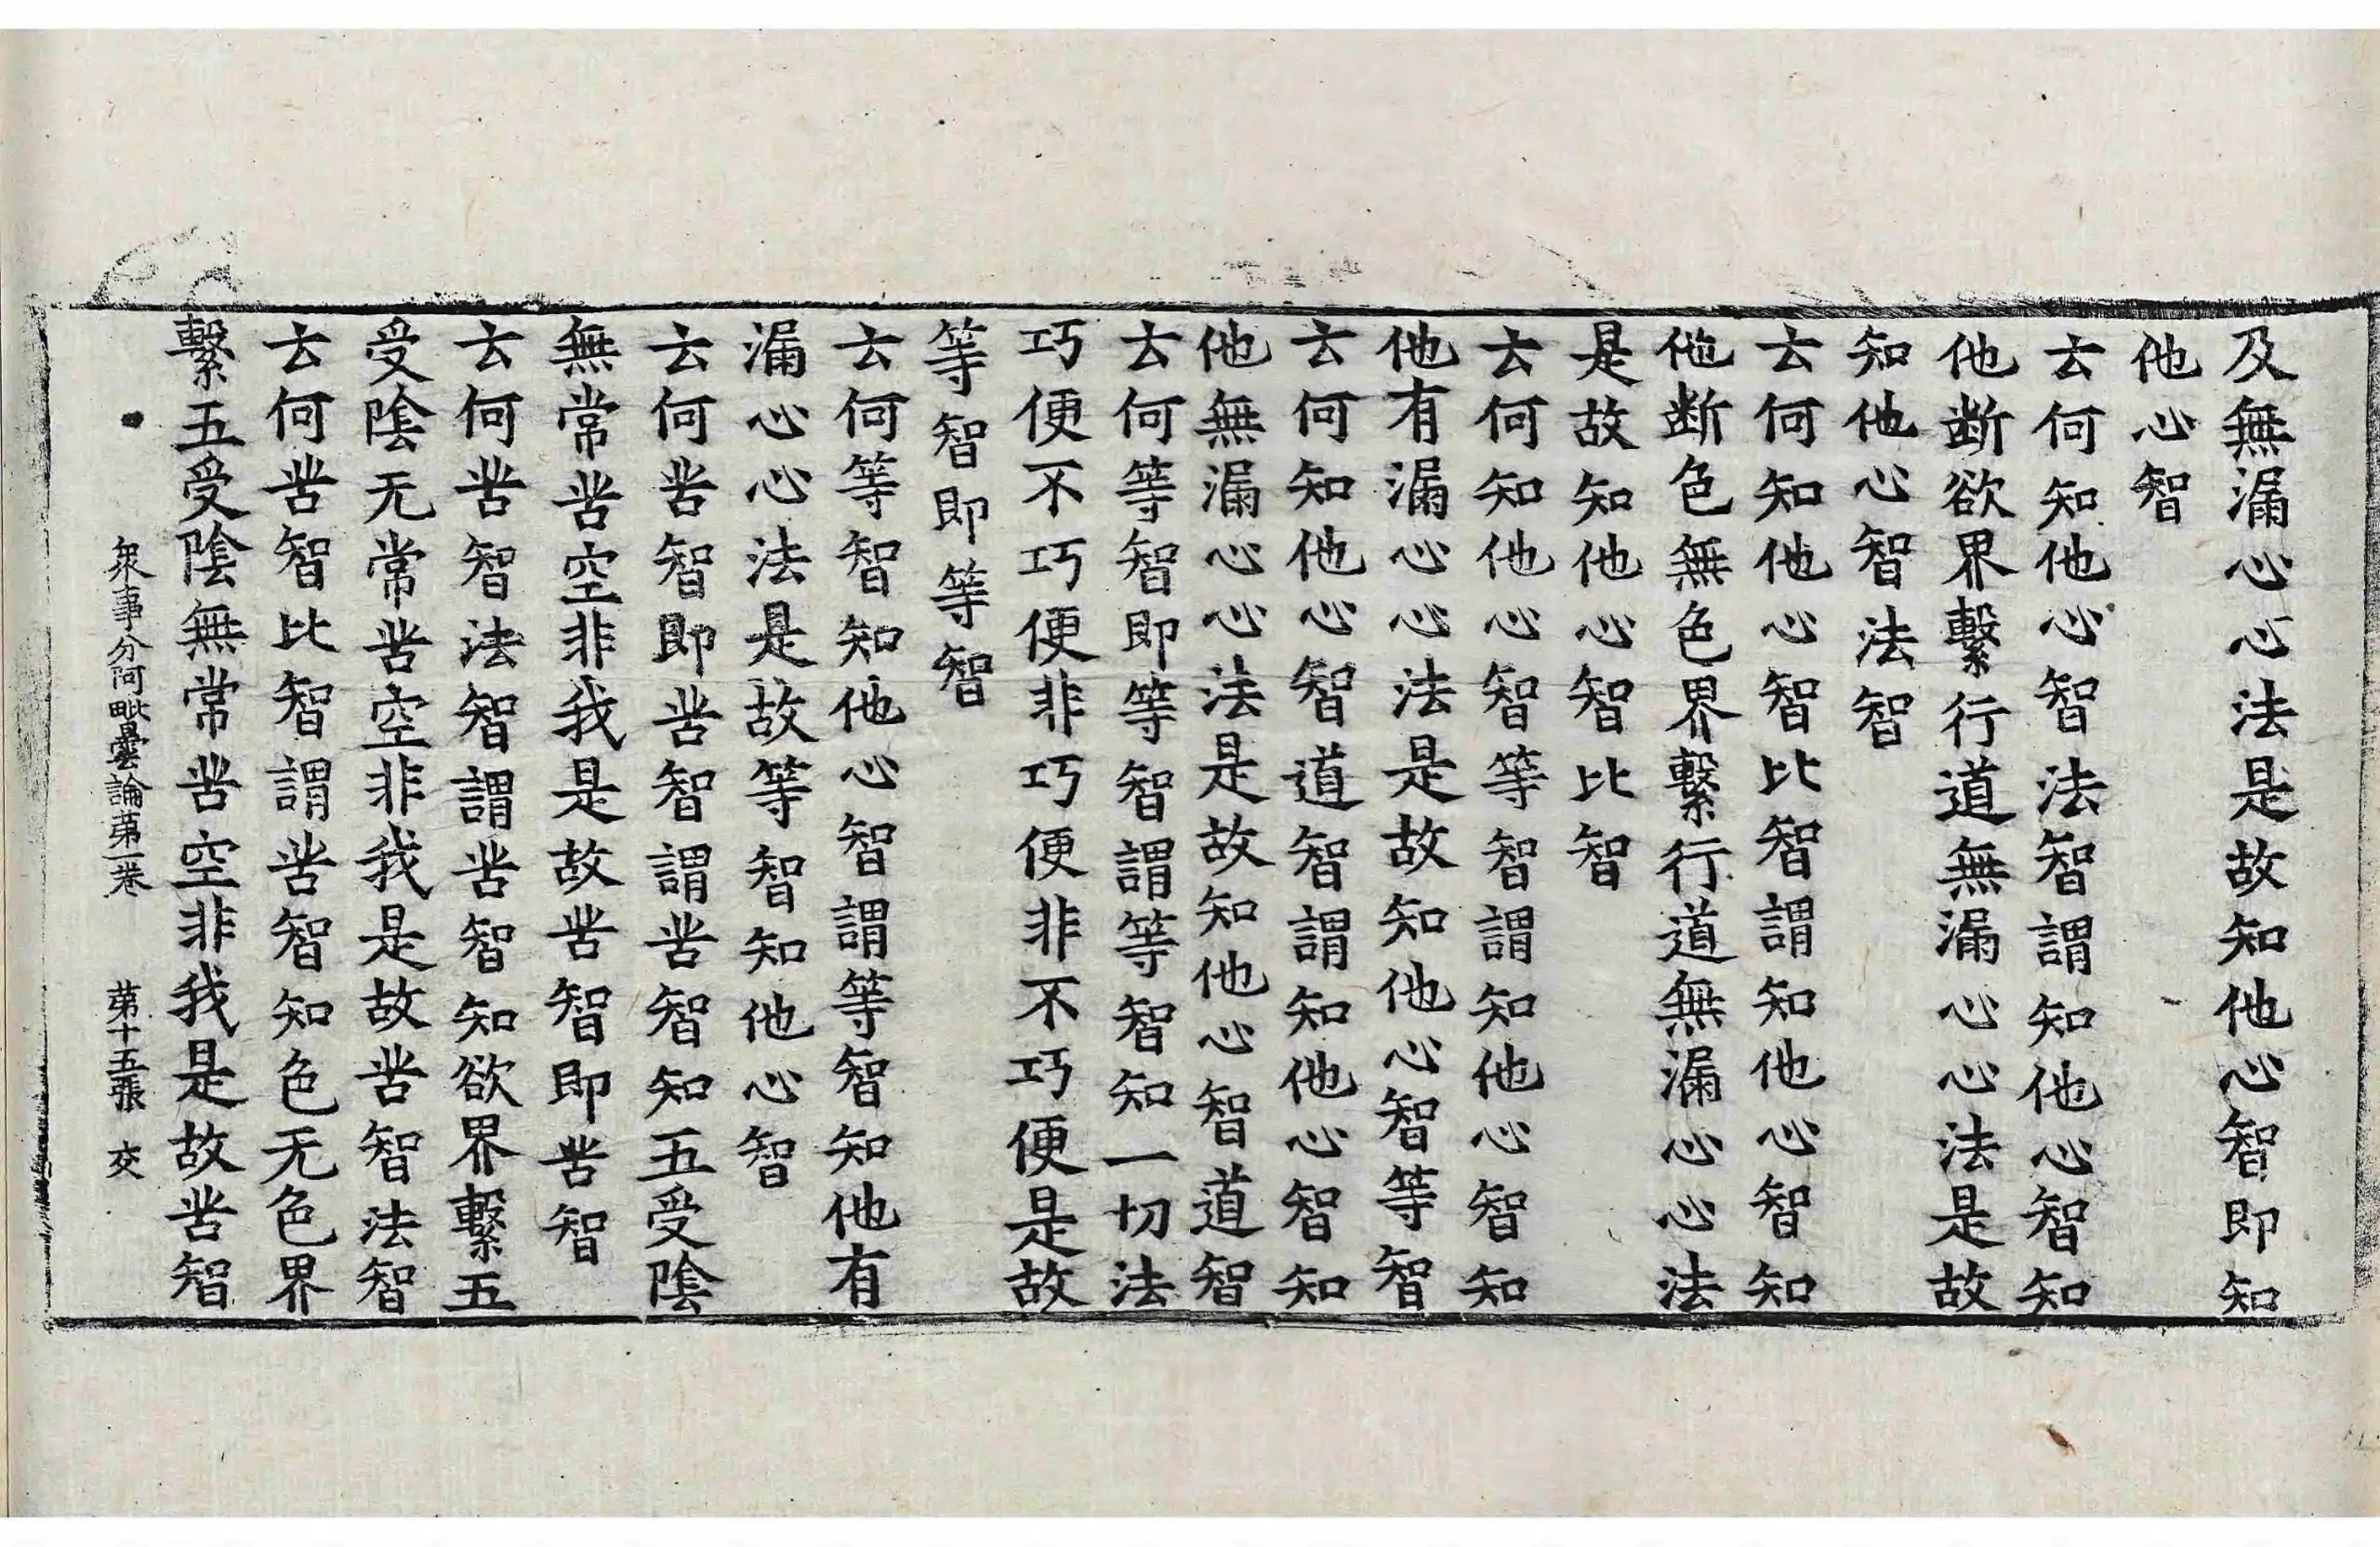 及無漏心心法是故知他心智即知
他心智
云何知他心智法智謂知他心智知
他斷欲界繫行道無漏心心法是故
知他心智法智
云何知他心智比智謂知他心智知
他斷色無色界繫行道無漏心心法
是故知他心智比智
云何知他心智等智謂知他心智知
他有漏心心法是故知他心智等智
云何知他心智道智謂知他心智知
他無漏心心法是故知他心智道智
云何等智即等智謂等智知一切法
巧便不巧便非巧便非不巧便是故
等智即等智
云何等智知他心智謂等智知他有
漏心心法是故等智知他心智
云何苦智即苦智謂苦智知五受陰
無常苦空非我是故苦智即苦智
云何苦智法智謂苦智知欲界繫五
受陰无常苦空非我是故苦智法智
云何苦智比智謂苦智知色无色界
繫五受陰無常苦空非我是故苦智
衆事分阿毗曇論第一卷 第十五張 交